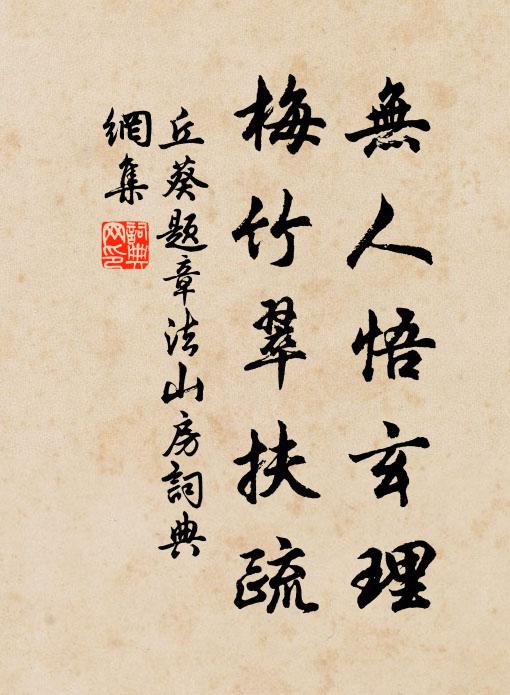 無人悟玄理
梅竹翠扶疏
丘葵題章法山房詞典
網集
詞典
网印